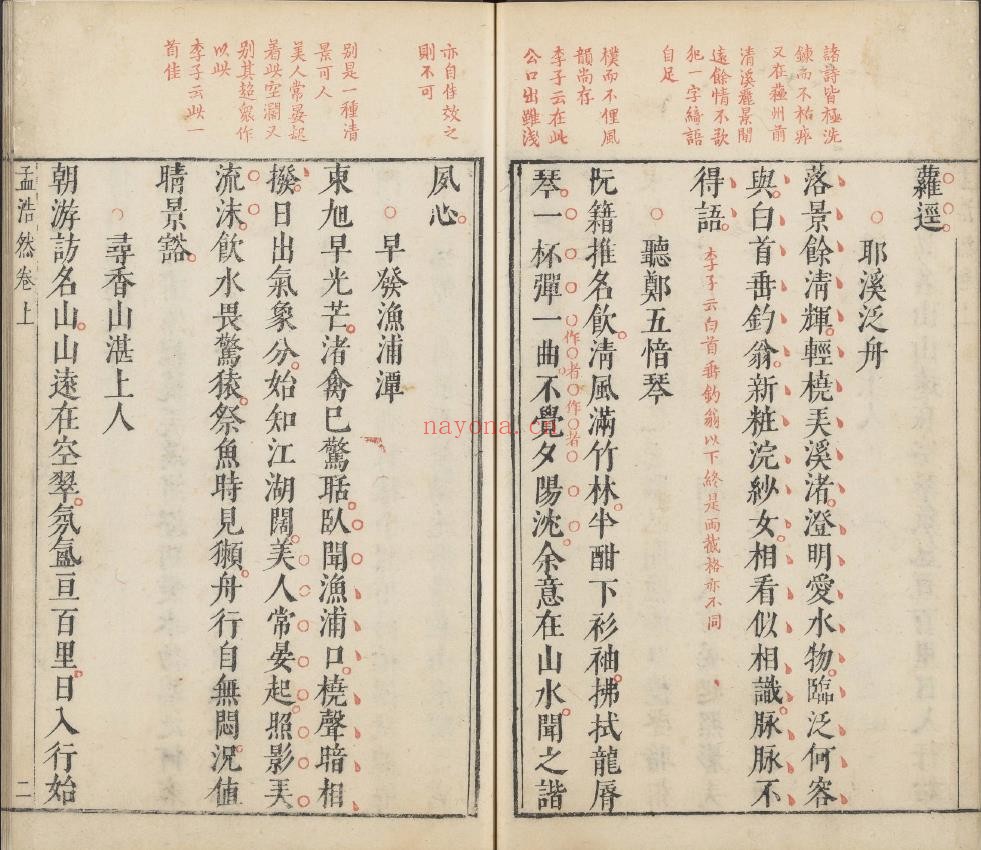 諸詩皆極洗
鍊而不枯瘁
又在蘇州前
清溪麗景閒
遠餘情不欲
犯一字綺語
自足
樸而不俚風
韻尚存
李子云在此
公口出雖淺
蘿逕
耶溪泛舟
落景餘清輝輕橈弄溪渚澄明愛水物臨泛何容
與白首垂釣翁新粧浣紗女相看似相識脉脉不
得語
李子云白首垂釣翁以下終是两截格亦不同
聽鄭五愔琴
阮籍推名飲清風滿竹林半酣下衫袖拂拭龍脣
琴一杯彈一曲不覺夕陽沈余意在山水聞之諧
作者作者
亦自佳效之
則不可
别是一種清
景可人
美人常晏起
着此空濶又
别其超衆作
以此
李子云此一
首佳
夙心
早發漁浦潭
東旭早光芒渚禽已驚聒臥聞漁浦口橈聲暗相
撥日出氣象分始知江湖闊美人常晏起照影弄
流沫飲水畏驚猿祭魚時見獺舟行自無悶況值
晴景豁
尋香山湛上人
朝游訪名山山遠在空翠氛氳亘百里日入行始
孟浩然卷上
二
nayona.cn